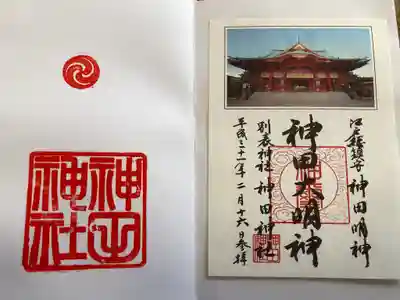 神田神社
江戸総鎮守 神田明神
神田大明神
別表神社 神田神社
平成三十一年二月十六日参拝